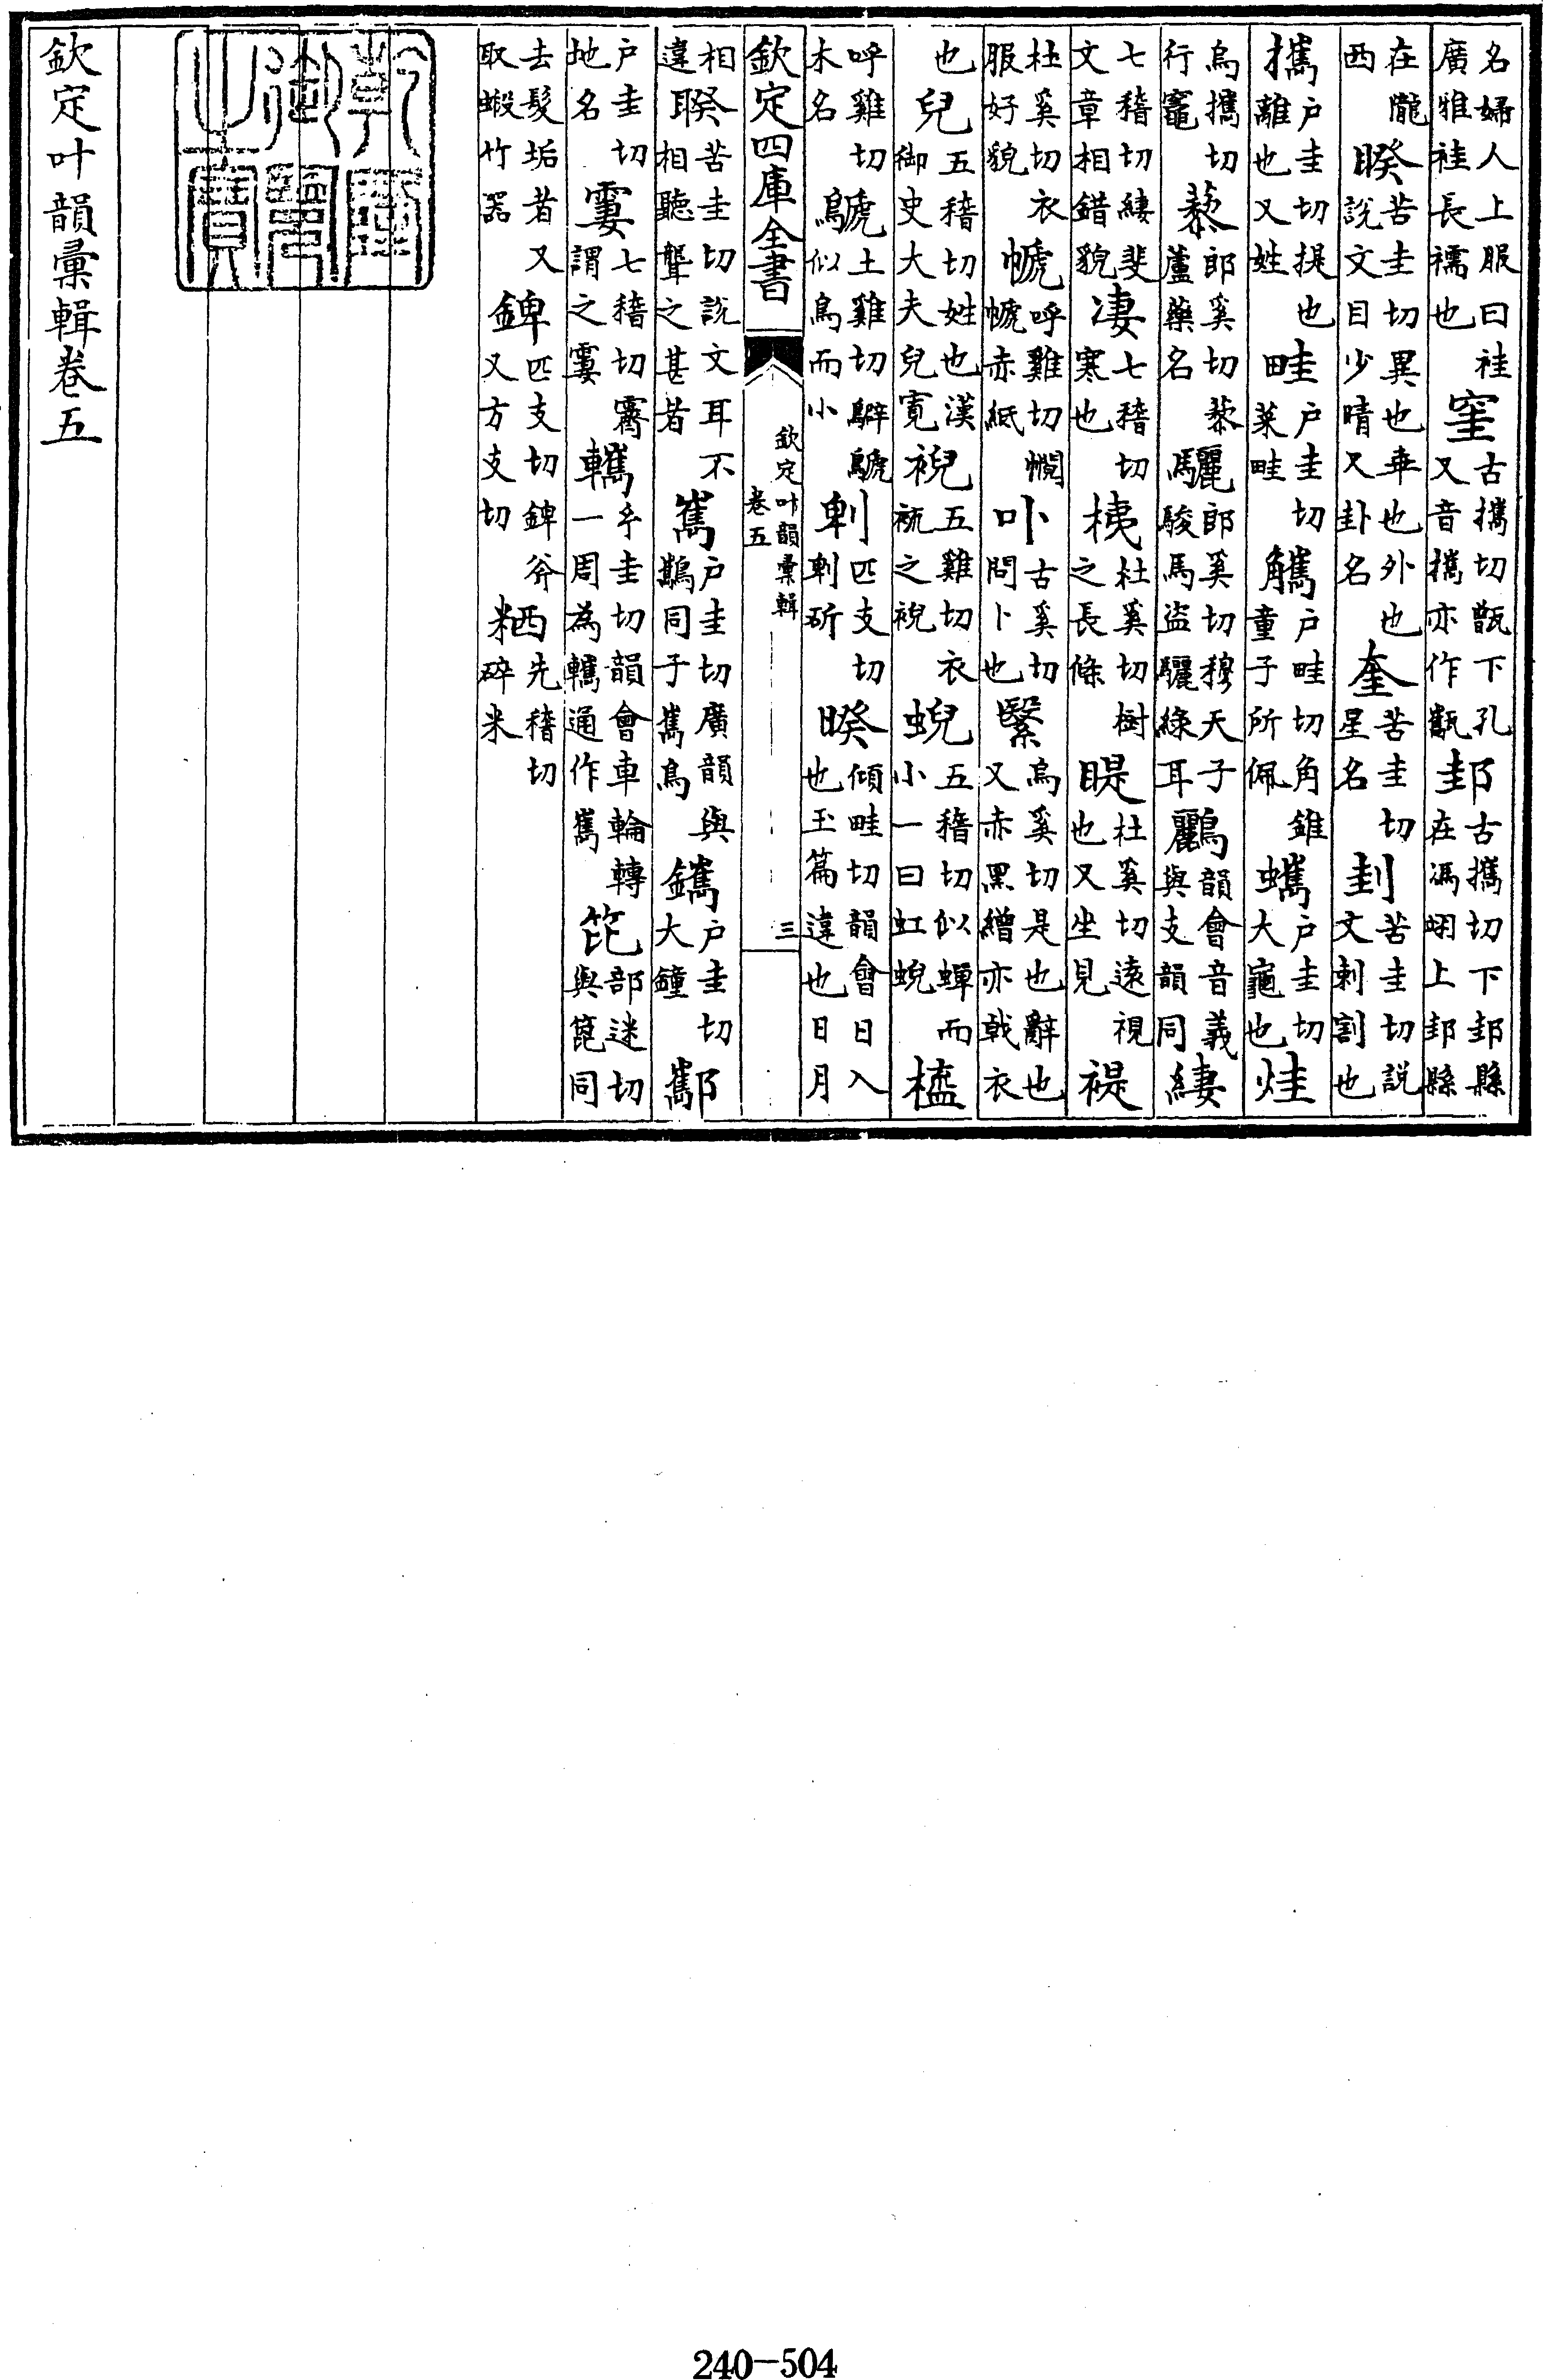 名婦人上服曰袿廣雅袿長襦也窐古攜切甑下孔又音攜亦作㼇邽古攜切下邽縣在馮翊上邽縣
在隴西睽苦圭切異也乖也外也説文目少睛又卦名奎苦圭切星名刲苦圭切説文刺割也
攜户圭切提也離也又姓畦户圭切菜畦觿户畦切角錐童子所佩蠵户圭切大龜也烓
烏攜切行竈藜郎奚切藜蘆藥名驪郎奚切穆天子駿馬盜驪綠耳鸝韻會音義與支韻同緀
七稽切緀斐文章相錯貌凄七稽切寒也桋杜奚切樹之長條睼杜奚切遠視也又坐見褆
杜奚切衣服好貌㡗呼雞切㡗赤紙卟古奚切問卜也繄烏奚切是也辭也又赤黑繒亦戟衣
也兒五稽切姓也漢御史大夫兒寬䘽五雞切衣䘯之䘽蜺五稽切似蟬而小一曰虹蜺榼
呼雞切木名鷈土雞切鸊鷈似鳥而小㓟匹支切㓟斫暌傾畦切韻會日入也玉篇違也日月
欽定四庫全書
欽定叶韻彙輯
卷五
三
相違聧苦圭切説文耳不相聽聾之甚者巂户圭切廣韻與鷤同子巂鳥鑴户圭切大鐘酅
户圭切地名霋七稽切霽謂之霋䡾乎圭切韻會車輪轉一周為䡾通作巂笓部迷切與篦同
去髮垢者又取蝦竹器錍匹支切錍斧又方支切粞先稽切碎米
乾隆御覽之寶
欽定叶韻彙輯卷五
240-504